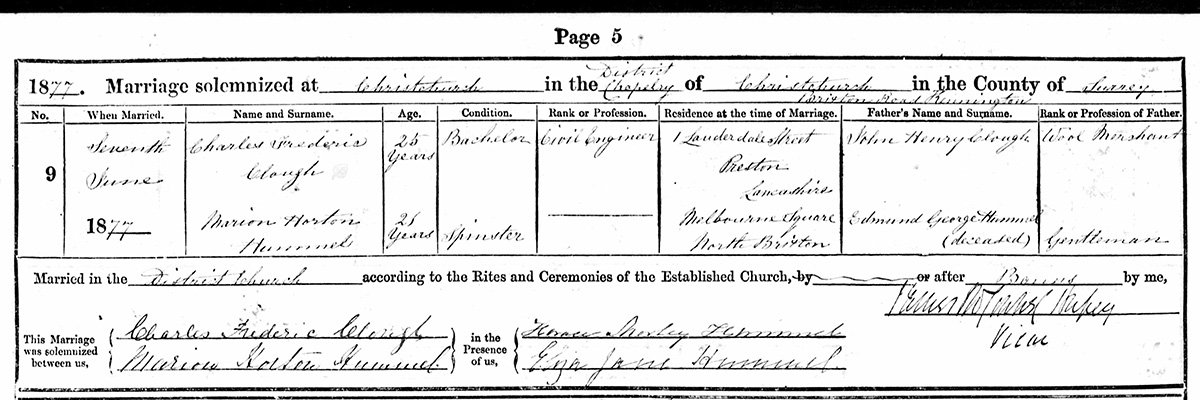 Page 5
1877. Marriage solemnized at Christchurch in the District Chapelry of Christchurch Brixton Road Kennington in the County of Surrey
No. When Married. Name and Surname. Age. Condition. Rank or Profession. Residence at the time of Marriage. Father's Name and Surname. Rank or Profession of Father.
9 Seventh June 1877 Charles Frederic Clough 25 Years Bachelor Civil Engineer 1 Lauderdale Street Preston Lancashire John Henry Clough Wool Merchant
Marion Horton Hummel 21 Years Spinster Melbourne Square North Brixton Edmund George Hummel (deceased) Gentleman
Married in the District Church according to the Rites and Ceremonies of the Established Church, by or after Banns by me,
Vicar
This Marriage was solemnized between us, Charles Frederic Clough
Marion Horton Hummel
in the Presence of us, Horace Morley Hummel
Eliza Jane Hummel